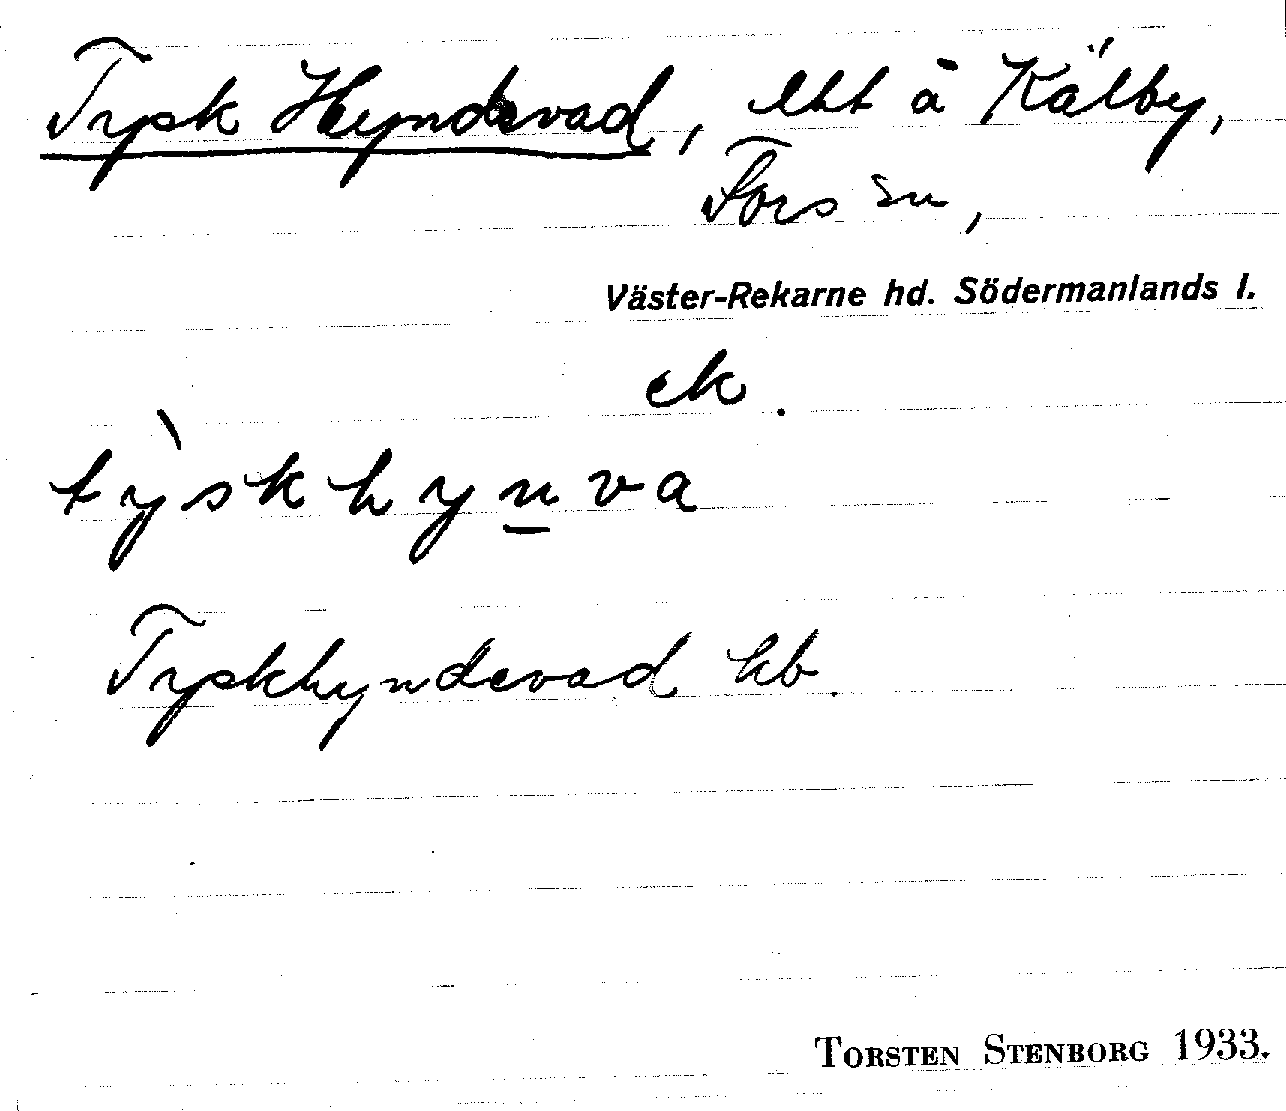 Tysk Hyndevad, lht å Kälby,
Fors sn,
Väster-Rekarne hd. Södermanlands l.
ek.
tỳskhyn̲va
Tyskhyndevad kb.
TORSTEN STENBORG 1933.